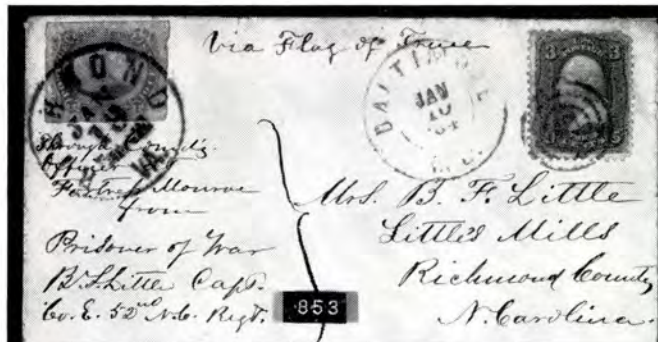 Via Flag of Truce
RICHMOND
JAN
VA.
BALTIMORE
JAN
10
64
M.D.
3
3
Through Comdg.
Officer
Fortress Monroe
from
Prisoner of War
B. F. Little Capt.
Co. E. 52nd N.C. Regt.
Mrs. B. F. Little
Little's Mills
Richmond County
N. Carolina.
853